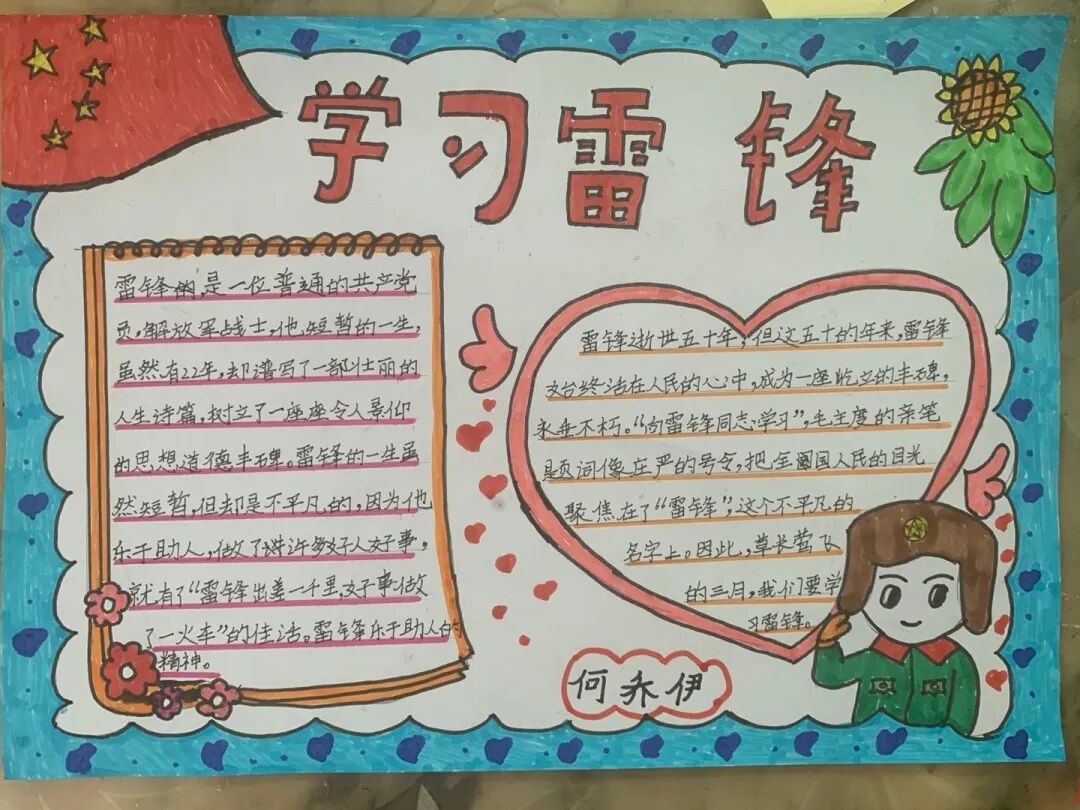 学习雷锋
雷锋的,是一位普通的共产党
员,解放军战士,他短暂的一生,
虽然有22年,却谱写了一部壮丽的
人生诗篇,树立了一座座令人景仰
的思想道德丰碑。雷锋的一生虽
然短暂,但却是不平凡的,因为他
乐于助人,做了许许多好人好事,
就有了“雷锋出差一千里,好事做
了一火车”的佳话。雷锋乐于助人的
精神。
雷锋逝世五十年,但这五十的年来,雷锋
始终活在人民的心中,成为一座屹立的丰碑,
永垂不朽。“向雷锋同志学习”,毛主度的亲笔
题词像庄严的号令,把全国人民的目光
聚焦在了“雷锋”,这个不平凡的
名字上。因此,草长莺飞
的三月,我们要学
习雷锋。
何乔伊